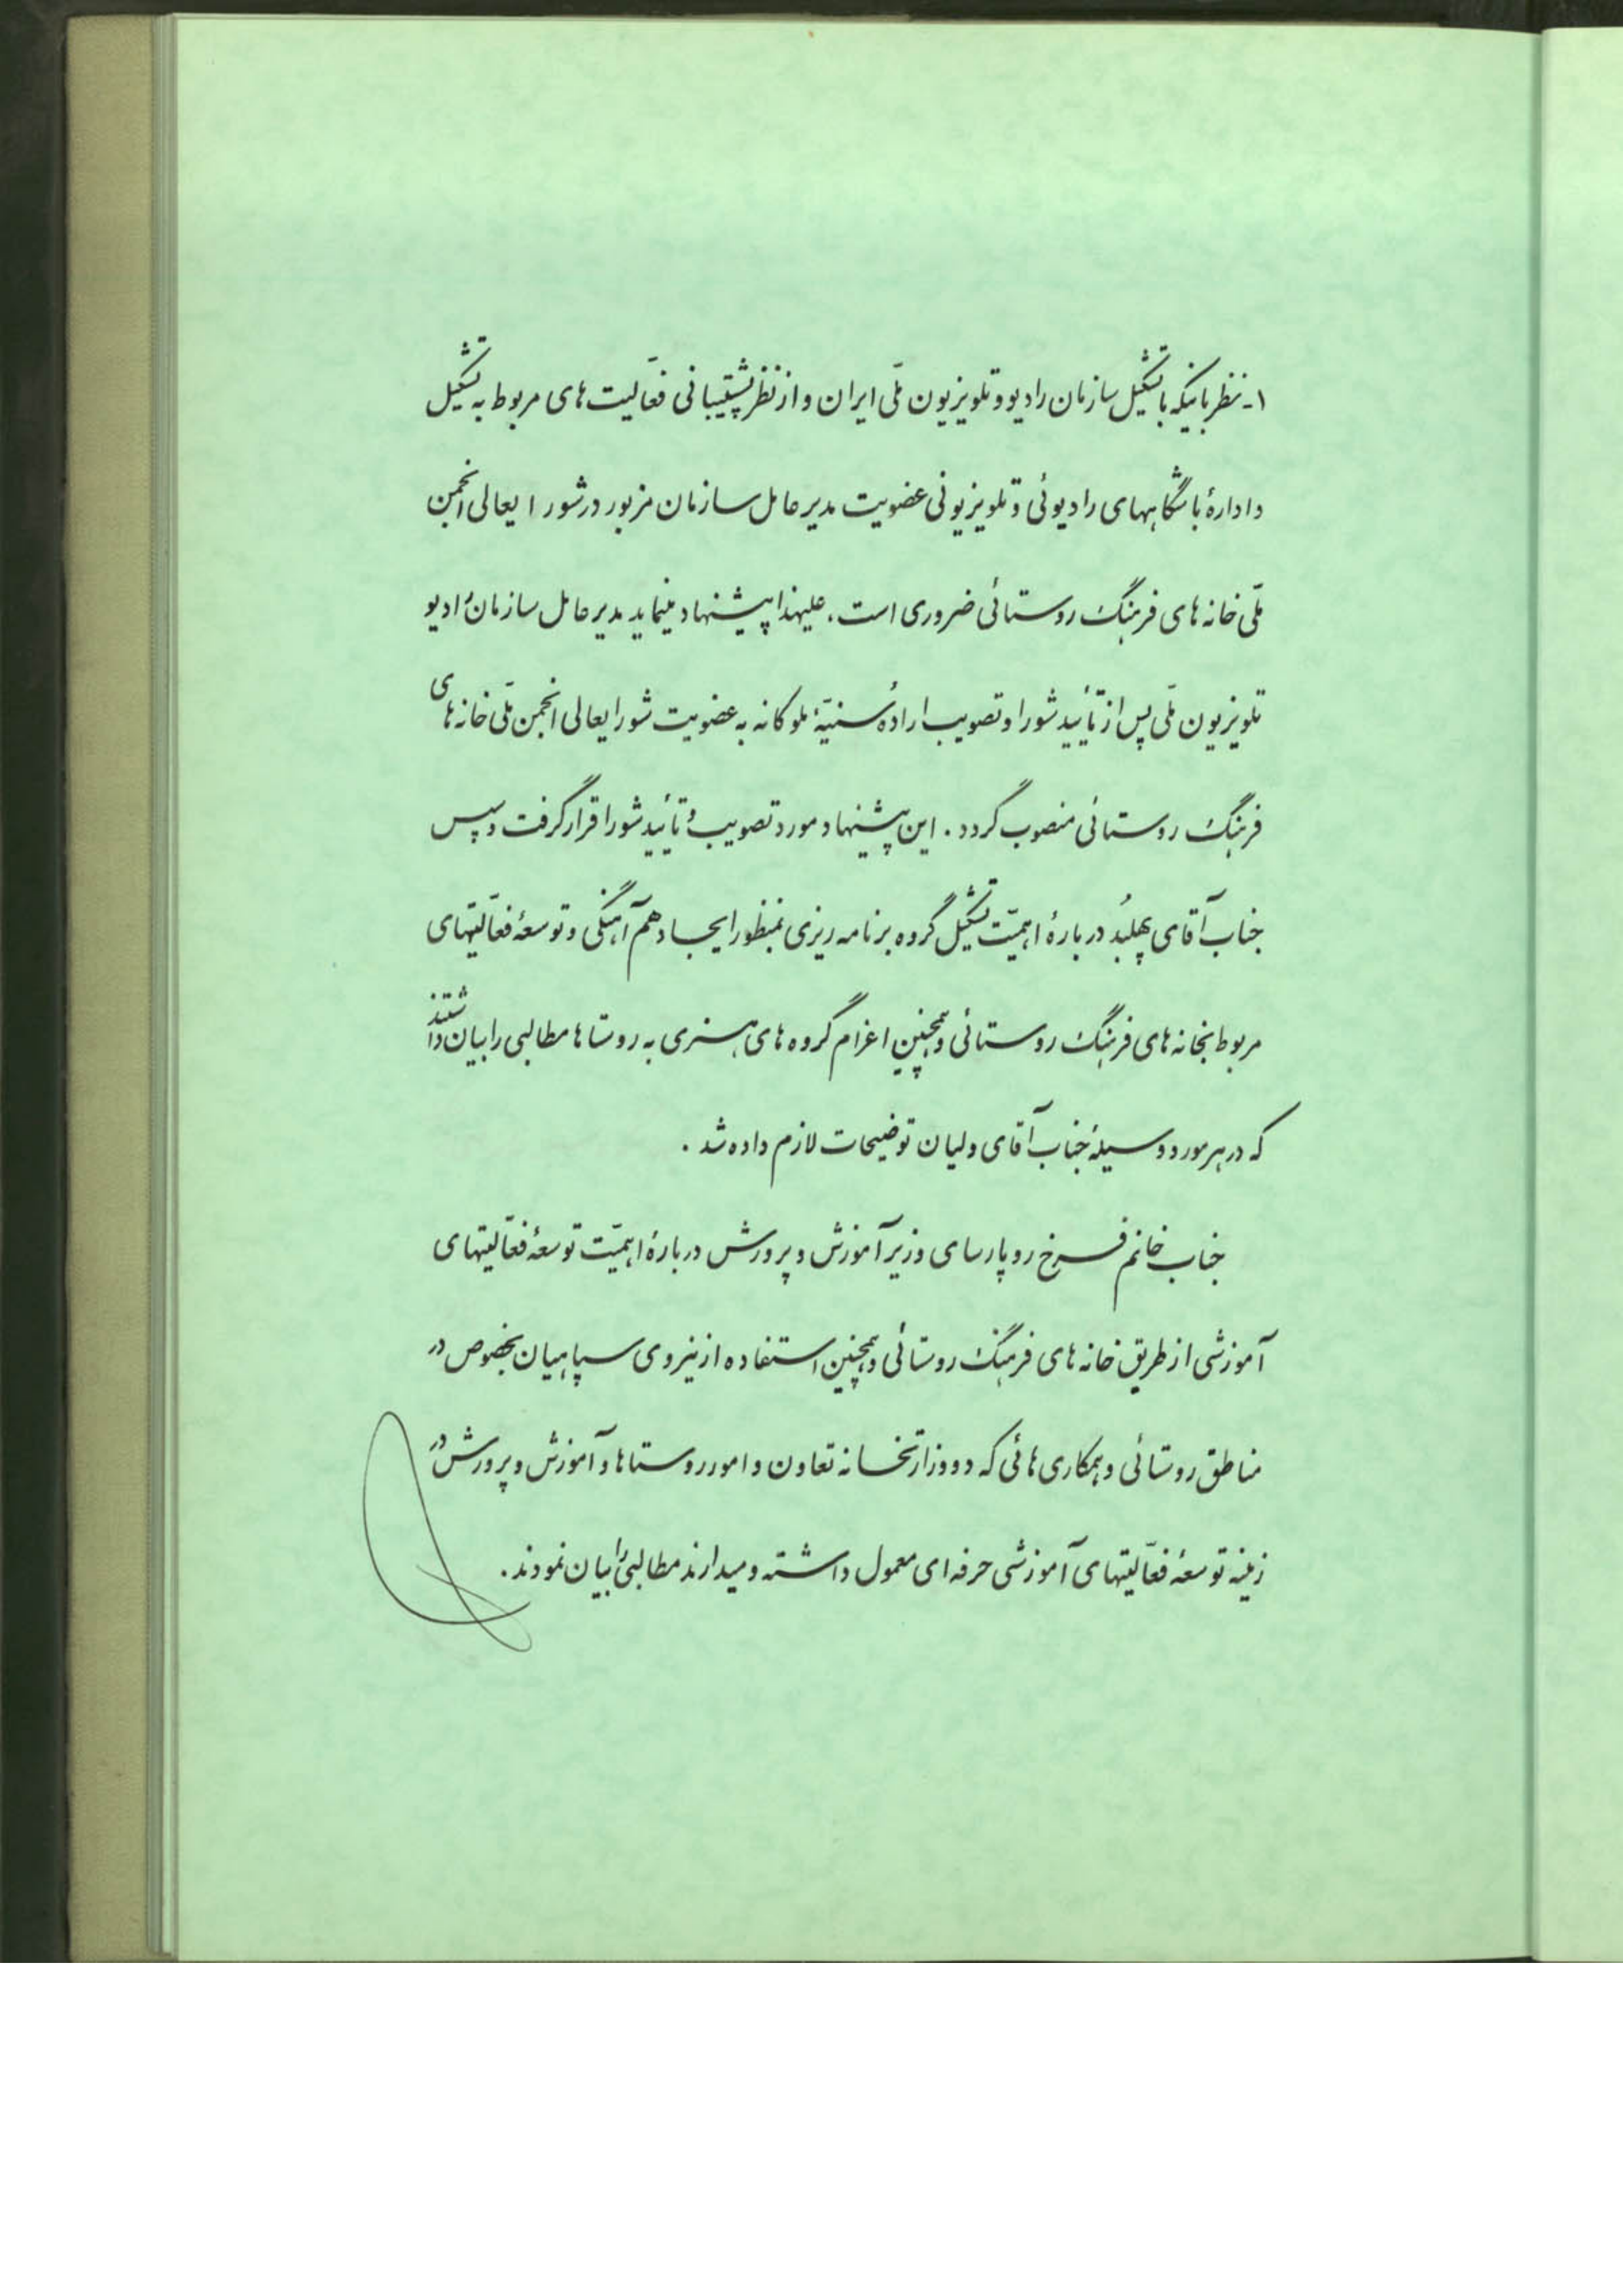 ۱- نظر باینکه با تشکیل سازمان رادیو و تلویزیون ملّی ایران و از نظر پشتیبانی فعّالیت های مربوط به تشکیل
و ادارهٔ باشگاههای رادیوئی و تلویزیونی عضویت مدیر عامل سازمان مزبور در شورایعالی انجمن
ملّی خانه های فرهنگ روستائی ضروری است. علیهذا پیشنهاد مینماید مدیر عامل سازمان رادیو
تلویزیون ملّی پس از تأیید شورا و تصویب ارادهٔ سنیّهٔ ملوکانه به عضویت شورایعالی انجمن ملّی خانه های
فرهنگ روستائی منصوب گردد. این پیشنهاد مورد تصویب و تأیید شورا قرار گرفت و سپس
جناب آقای پهلبُد دربارهٔ اهمیّت تشکیل گروه برنامه ریزی بمنظور ایجاد هم آهنگی و توسعهٔ فعّالیتهای
مربوط بخانه های فرهنگ روستائی و همچنین اعزام گروه های هنری به روستاها مطالبی را بیان داشتند
که در هر مورد وسیلهٔ جناب آقای ولیان توضیحات لازم داده شد.
جناب خانم فرخ رو پارسای وزیر آموزش و پرورش دربارهٔ اهمیّت توسعهٔ فعّالیتهای
آموزشی از طریق خانه های فرهنگ روستائی و همچنین استفاده از نیروی سپاهیان بخصوص در
مناطق روستائی و همکاری هائی که دو وزارتخانه تعاون و امور روستاها و آموزش و پرورش در
زمینه توسعهٔ فعّالیتهای آموزشی حرفه ای معمول داشته و میدارند مطالبی را بیان نمودند.